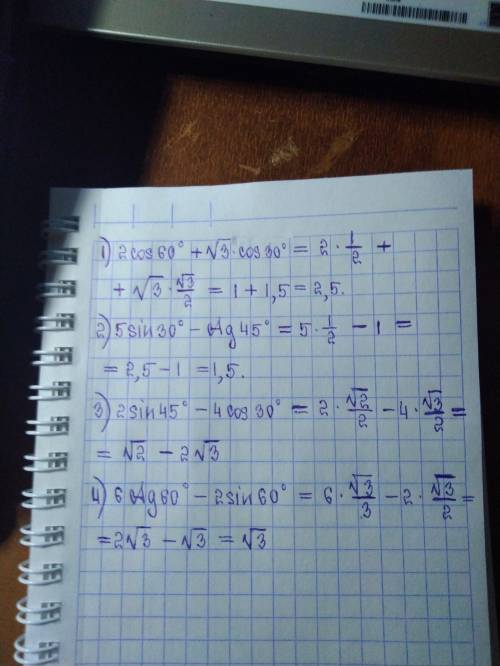 1) 2cos60° + √3·cos30° = 2·1/2 +
+ √3·√3/2 = 1 + 1,5 = 2,5.
2) 5sin30° - tg45° = 5·1/2 - 1 =
= 2,5 - 1 = 1,5.
3) 2sin45° - 4cos30° = 2·√2/2 - 4·√3/2 =
= √2 - 2√3
4) 6tg60° - 2sin60° = 6·√3/3 - 2·√3/2 =
= 2√3 - √3 = √3